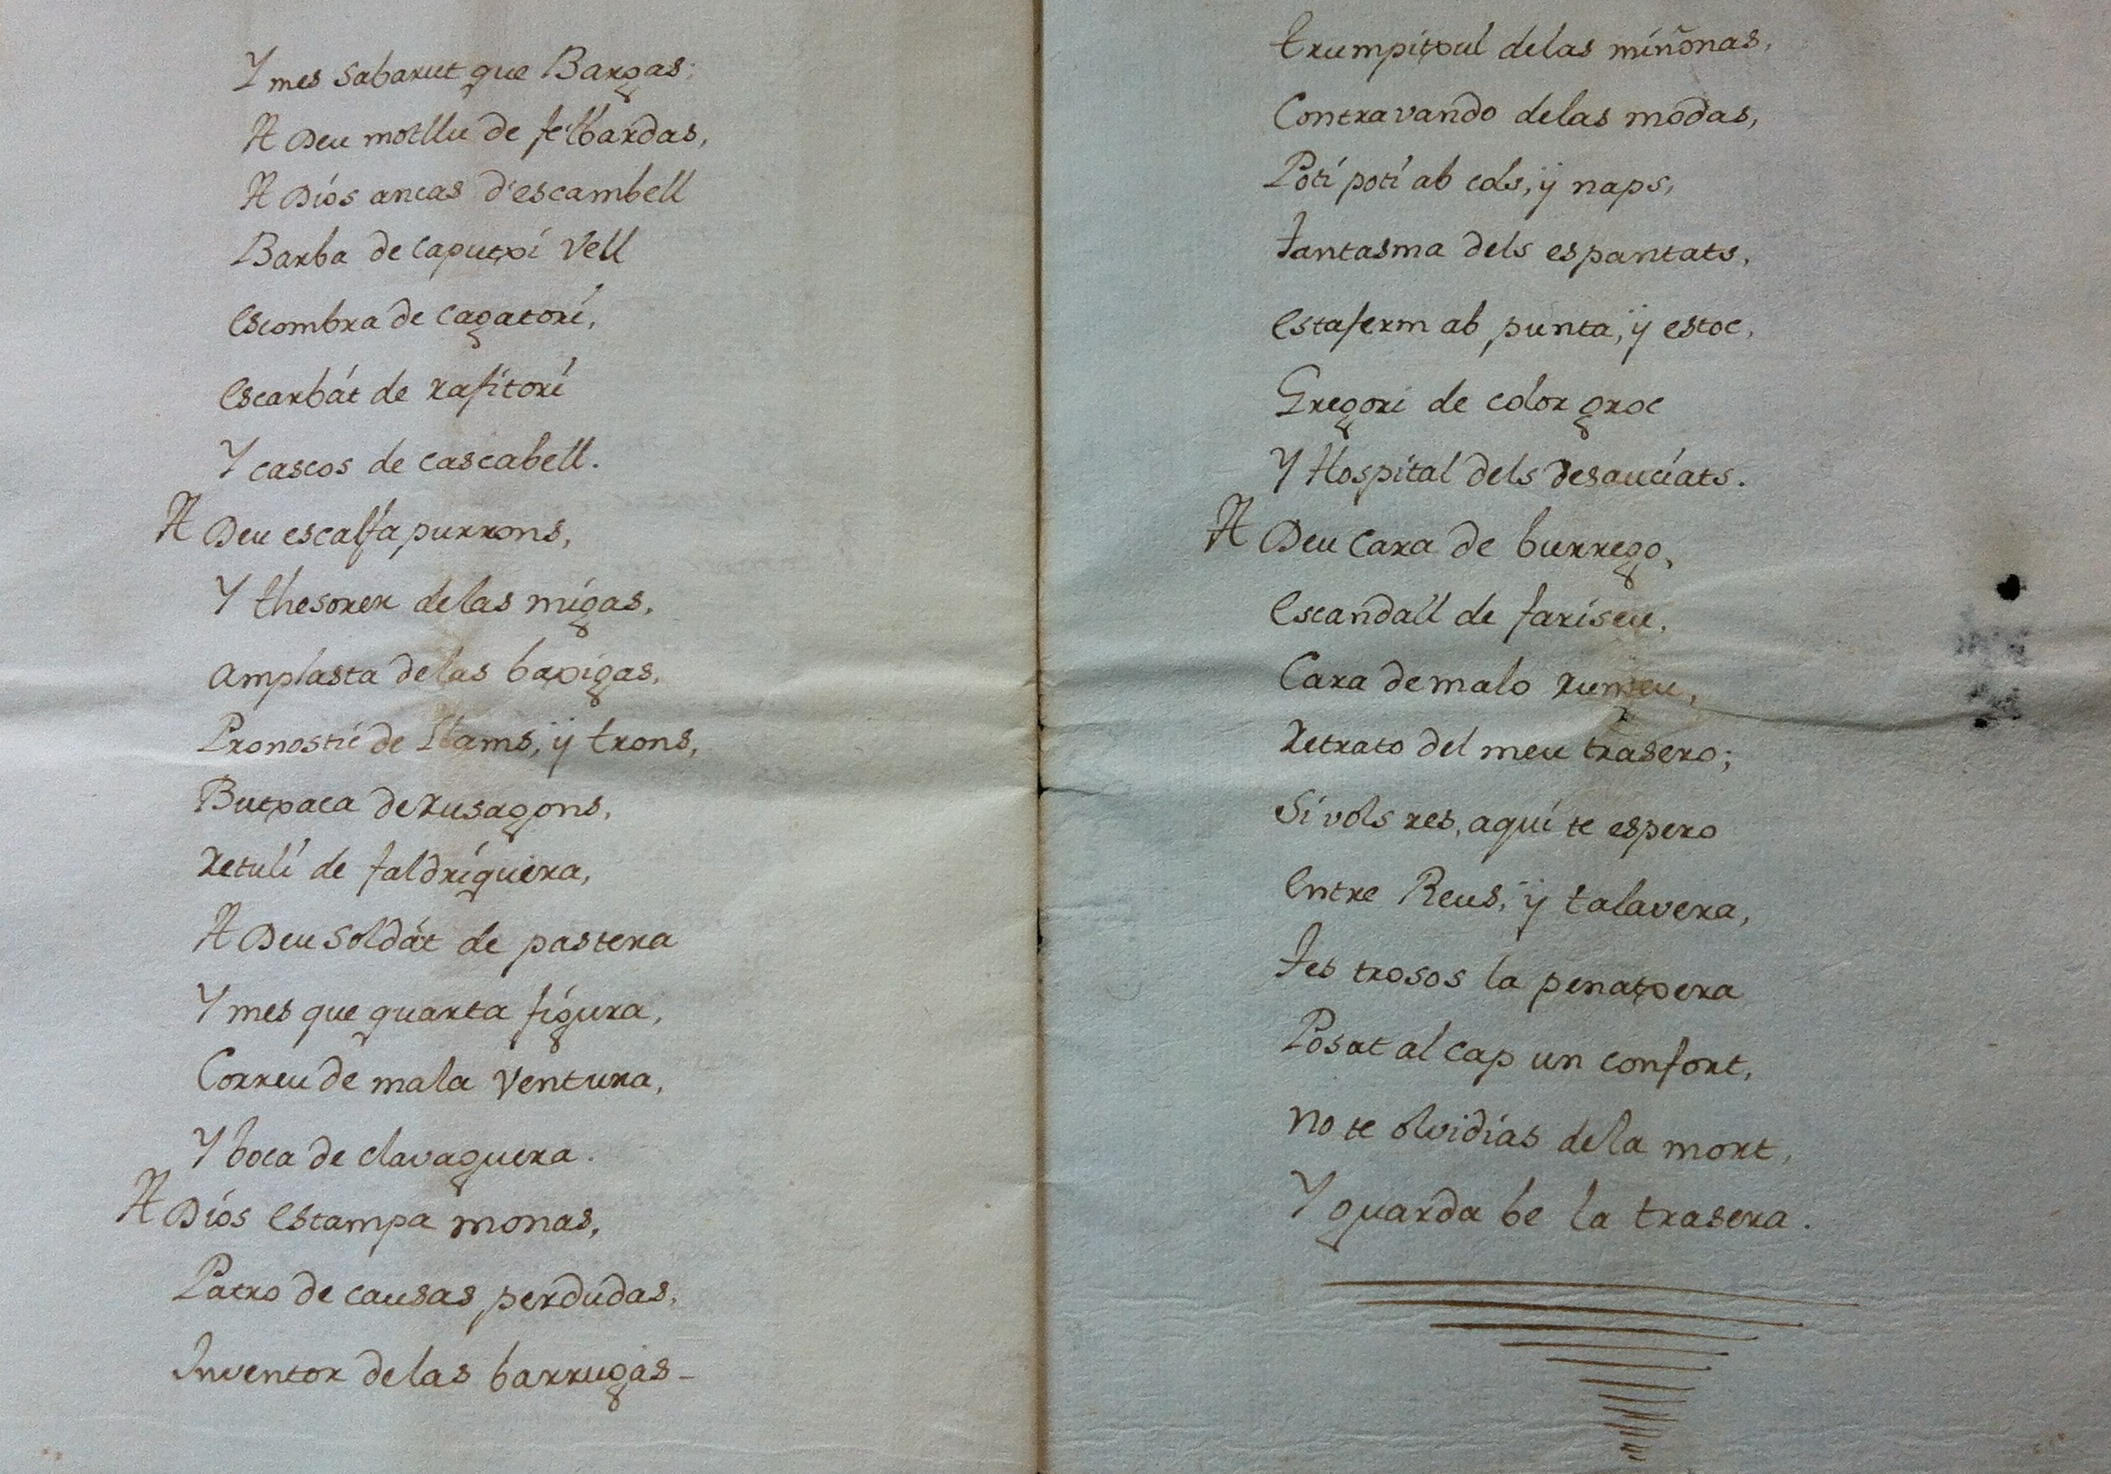 Y mes Sabarut que Bargas;
A Deu motllu de felbardas,
A Dios ancas d'escambell
Barba de Caputxi Vell
Escombra de Cagatorí,
Escarbát de rafitorí
Y cascos de cascabell.
A Deu escalfa purrons,
Y thesorer delas mígas,
Amplasta delas baxigas,
Pronostic de Llams, ÿ trons,
Butxaca de Rusagons,
Retulí de faldríguera,
A Deu Soldát de pastera
Y mes que quarta fígura,
Correu de mala Ventura,
Y boca de clavaguera.
A Dios Estampa monas,
Patro de causas perdudas,
Inventor delas barrugas
trumpitxul delas miñonas,
Contravando delas modas,
Poti poti ab cols, ÿ naps,
Fantasma dels espantats,
Estaferm ab punta, ÿ estoc,
Gregori de color groc
Y Hospital dels desauciats.
A Deu Cara de burrego,
Escandall de fariseu,
Cara de malo Rumeu,
Retrato del meu trasero;
Si vols res, aquí te espero
Entre Reus, ÿ talavera,
Fes trosos la penatxera
Posat al Cap un confort,
No te olvidias dela mort,
Y guarda be la trasera.